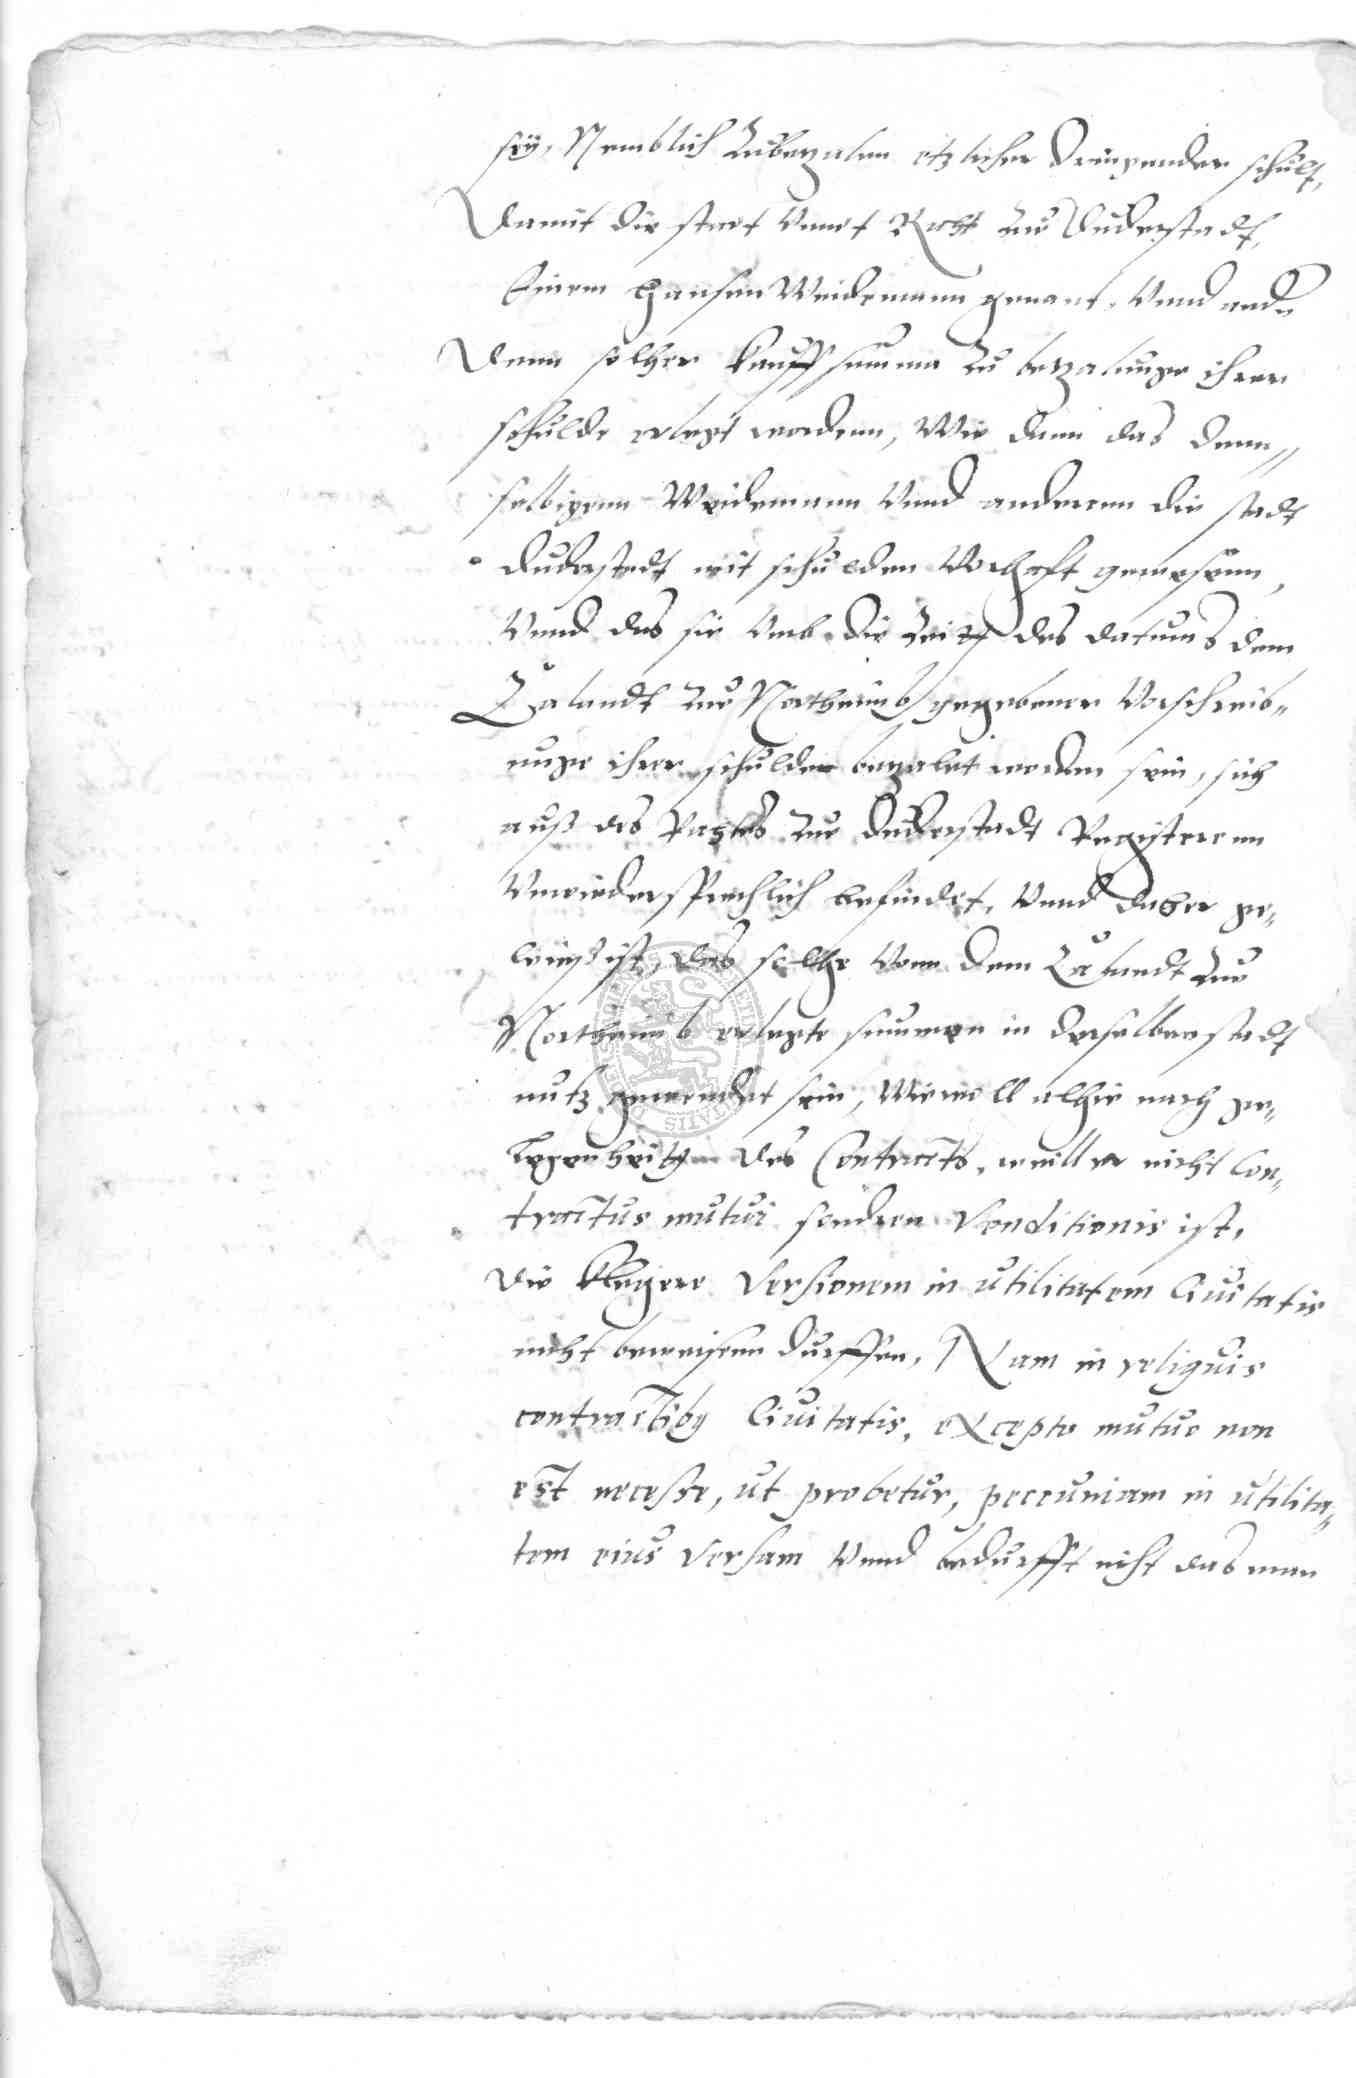 seÿ, Nemblich Zubezalen etzlicher dringender schult,
Damit die statt unnd Rath zur Duderstadt,
Einem Hansen Weidemann genant, Unnd and.
Denn solcher kauff summa zu bezalunge ihrer
schulde erlegt wordenn, Wie dann das denn
selbigenn Weidemann Unnd anderenn die stadt
Duderstadt mit schulden Verhafft gewesenn,
Unnd das sie Umb die Zeitt des datums dem
Calandt zur Northeimb gegebener Verschreib-
unge ihrer schulde bezalet worden sein, sich
auß des Raths zur Duderstadt Registerenn
Unwiedersprechlich befindet, Unnd daher ge-
wiß ist, das solche Vonn dem Calandt zur
Northeimb erlegte summen in derselben stadt
nutz gewendet sein, Wiewoll alhie nach ge-
legenheitt des Contracts, weill er nicht Con-
tractus mutui sondern Venditionis ist,
die klegere Versionem in utilitatem Civitatis
nicht beweisenn durffen, Nam in reliquis
contractibus Civitatis, excepto mutuo non
est necesse, ut probetur, peccuniam in utilita-
tem eius versam Unnd bedurfft nicht das man